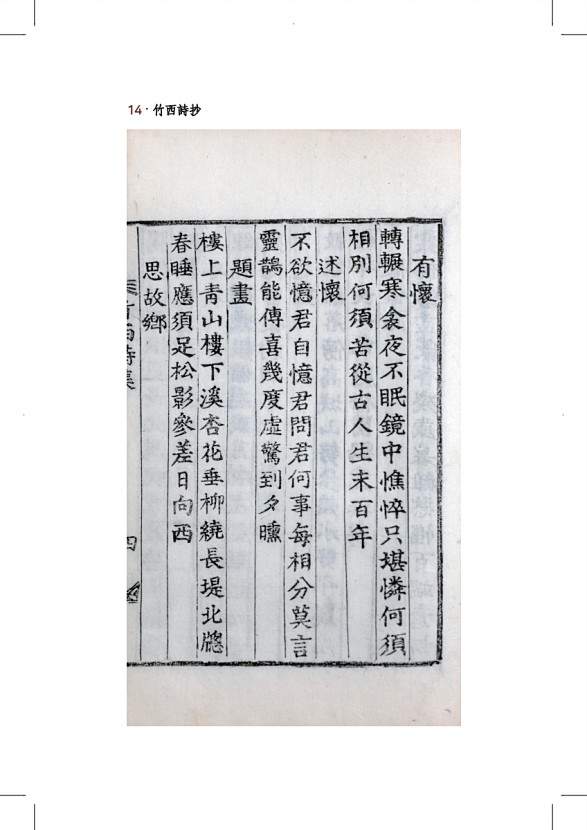 14 · 竹西詩抄
有懷
轉輾寒衾夜不眠鏡中憔悴只堪憐何須
相別何須苦從古人生未百年
述懷
不欲憶君自憶君問君何事每相分莫言
靈鵲能傳喜幾度虛驚到夕曛
題畫
樓上靑山樓下溪杏花垂柳繞長堤北牕
春睡應須足松影參差日向西
思故鄉
竹西詩集
四